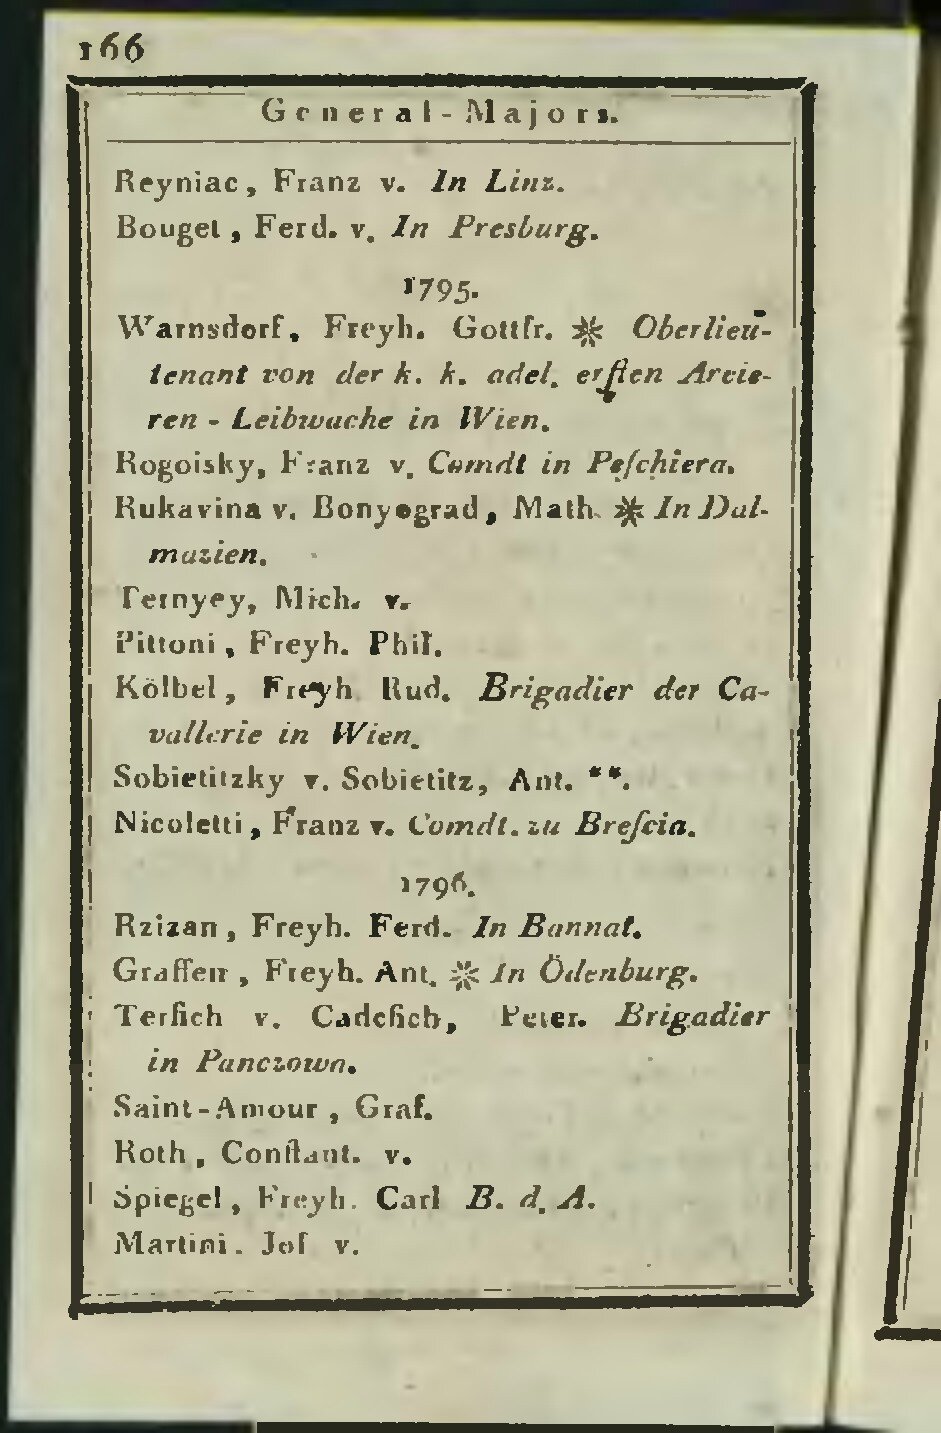 166
General-Majors.
Reyniac, Franz v. In Linz.
Bouget, Ferd. v. In Presburg.
1795.
Warnsdorf, Freyh. Gottfr. ※ Oberlieu-
tenant von der k. k. adel. erſten Arcie-
ren-Leibwache in Wien.
Rogoisky, Franz v. Comdt in Peſchiera.
Rukavina v. Bonyograd, Math. ※ In Dal-
mazien.
Ternyey, Mich. v.
Pittoni, Freyh. Phil.
Kölbel, Freyh. Rud. Brigadier der Ca-
vallerie in Wien.
Sobietitzky v. Sobietitz, Ant. **.
Nicoletti, Franz v. Comdt. zu Breſcia.
1796.
Rzizan, Freyh. Ferd. In Bannat.
Graffen, Freyh. Ant. ※ In Ödenburg.
Terſich v. Cadeſich, Peter. Brigadier
in Panczowa.
Saint-Amour, Graf.
Roth, Conſtant. v.
Spiegel, Freyh. Carl B. d. A.
Martini. Joſ v.